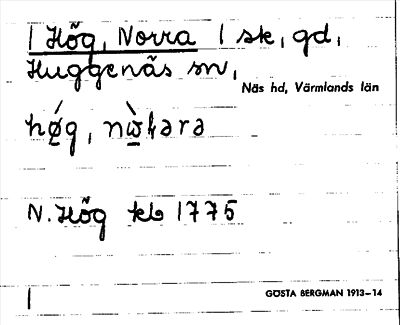 1 Hög, Norra 1 sk, gd,
Huggenäs sn,
Näs hd, Värmlands län
hǿg, nὼɧara
N. Hög kb 1775
1
GÖSTA BERGMAN 1913–14